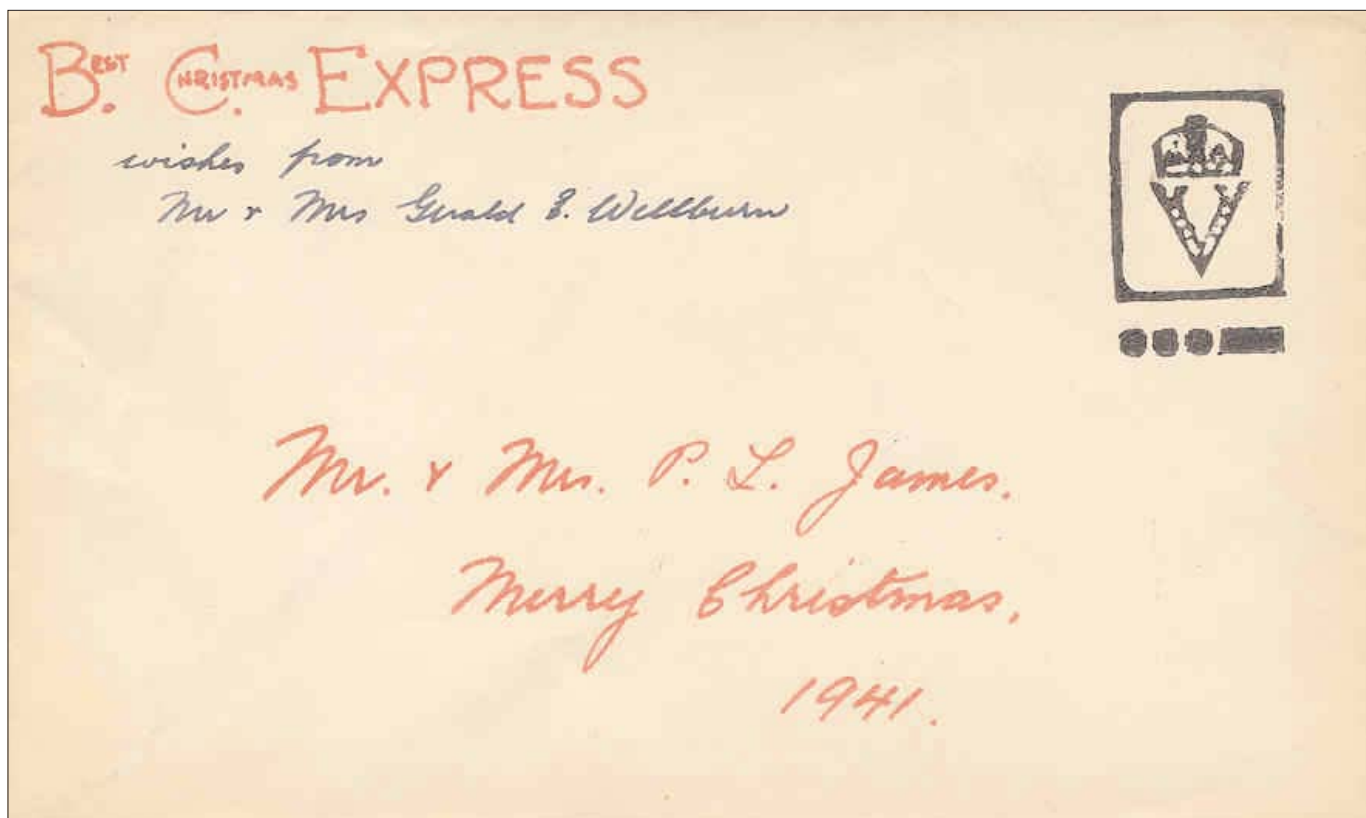 BEST. CHRISTMAS. EXPRESS
wishes from
Mr & Mrs Gerald E. Wellburn
V
Mr. & Mrs. P. L. James.
Merry Christmas,
1941.